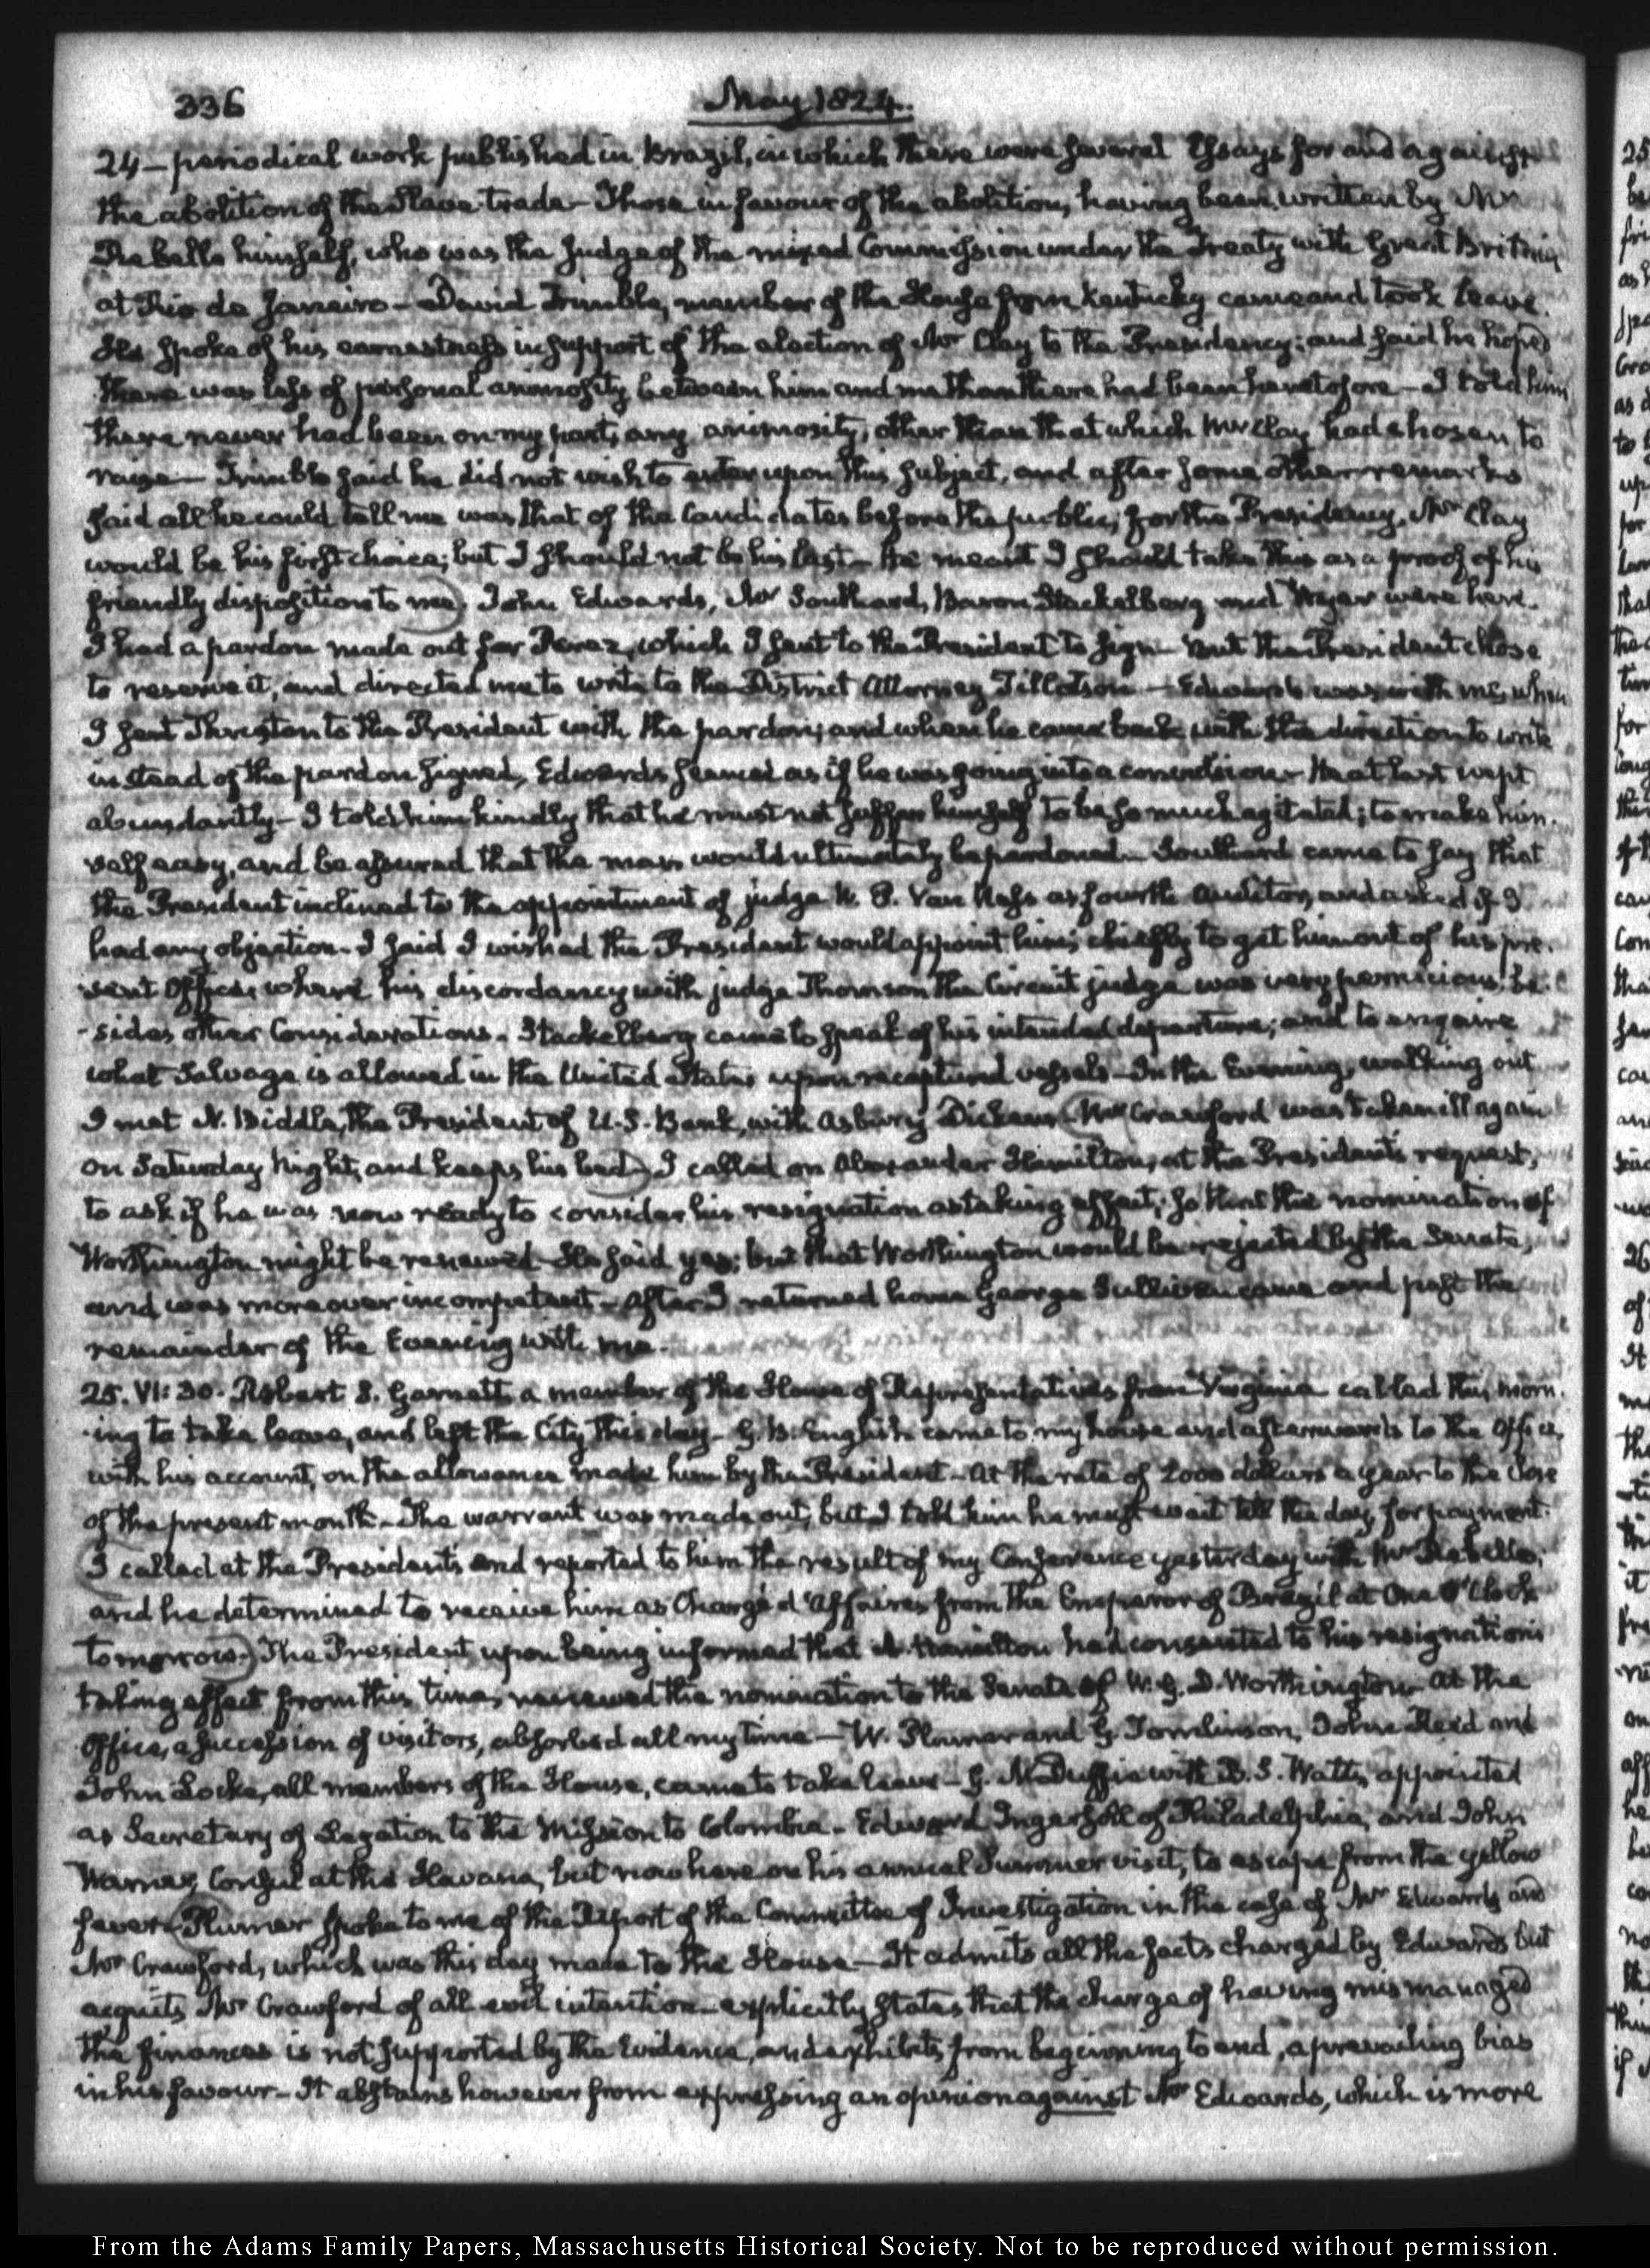 336
May 1824.
24 – periodical work published in Brazil, in which there were several Essays for and against
the abolition of the Slave-trade – Those in favour of the abolition, having been written by Mr
Rebello himself, who was the Judge of the mixed Commission under the Treaty with Great Britain
at Rio de Janeiro – David Trimble, member of the House from Kentucky came and took leave.
He spoke of his earnestness in support of the election of Mr Clay to the Presidency; and said he hoped
there was less of personal animosity between him and me than there had been heretofore – I told him
there never had been on my part, any animosity, other than that which Mr Clay had chosen to
raise – Trimble said he did not wish to enter upon this subject, and after some other remarks
said all he could tell me was that of the Candidates before the public, for the Presidency, Mr Clay
would be his first choice; but I should not be his last – He meant I should take this as a proof of his
friendly disposition to me) John Edwards, Mr Southard, Baron Stackelberg and Wyer were here.
I had a pardon made out for Perez, which I sent to the President to sign – But the President chose
to reserve it, and directed me to write to the District Attorney Tillotson – Edwards was with me, when
I sent Thruston to the President with the pardon; and when he came back with the direction to write
instead of the pardon signed, Edwards seemed as if he was going into a convulsion – He at last wept
abundantly – I told him kindly that he must not suffer himself to be so much agitated; to make him-
self easy, and be assured that the man would ultimately be pardoned – Southard came to say that
the President inclined to the appointment of judge W. P. Van Ness as fourth Auditor, and asked if I
had any objection – I said I wished the President would appoint him; chiefly to get him out of his pre-
sent Office, where his discordancy with judge Thomson the Circuit judge was very pernicious: be-
-sides other Considerations. Stackelberg came to speak of his intended departure; and to enquire
what Salvage is allowed in the United States upon recaptured vessels – In the Evening, walking out
I met N. Biddle, the President of U.S. Bank, with Asbury Dickens (Mr Crawford was taken ill again
on Saturday Night, and keeps his bed) I called on Alexander Hamilton, at the President's request,
to ask if he was now ready to consider his resignation as taking effect; so that the nomination of
Worthington might be renewed – He said yes; but that Worthington would be rejected by the Senate,
and was moreover incompetent – After I returned home George Sullivan came and past the
remainder of the Evening with me.
25. VI: 30. Robert S. Garnett a member of the House of Representatives from Virginia called this morn-
-ing to take leave, and left the City this day – G. B. English came to my house and afterwards to the Office,
with his account, on the allowance made him by the President – At the rate of 2000 dollars a year to the close
of the present month – The warrant was made out, but I told him he must wait till the day for payment.
(I called at the President's and reported to him the result of my Conference yesterday with Mr Rebello;
and he determined to receive him as Chargé d'Affaires from the Emperor of Brazil at One O'Clock
tomorrow.) The President upon being informed that A. Hamilton had consented to his resignation's
taking effect from this time, renewed the nomination to the Senate of W. G. D. Worthington – At the
Office, a succession of visitors, absorbed all my time – W. Plumer and G. Tomlinson, John Reed and
John Locke, all members of the House, came to take leave – G. McDuffie with B. S. Watts, appointed
as Secretary of Legation to the Mission to Colombia – Edward Ingersoll of Philadelphia, and John
Warner, Consul at the Havana, but now here on his annual Summer visit, to escape from the yellow
fever – (Plumer spoke to me of the Report of the Committee of Investigation in the case of Mr Edwards and
Mr Crawford, which was this day made to the House – It admits all the facts charged by Edwards but
acquits Mr Crawford of all evil intention – explicitly states that the charge of having mismanaged
the finances is not supported by the Evidence, and exhibits from beginning to end, a prevailing bias
in his favour – It abstains however from expressing an opinion against Mr Edwards, which is more
From the Adams Family Papers, Massachusetts Historical Society. Not to be reproduced without permission.